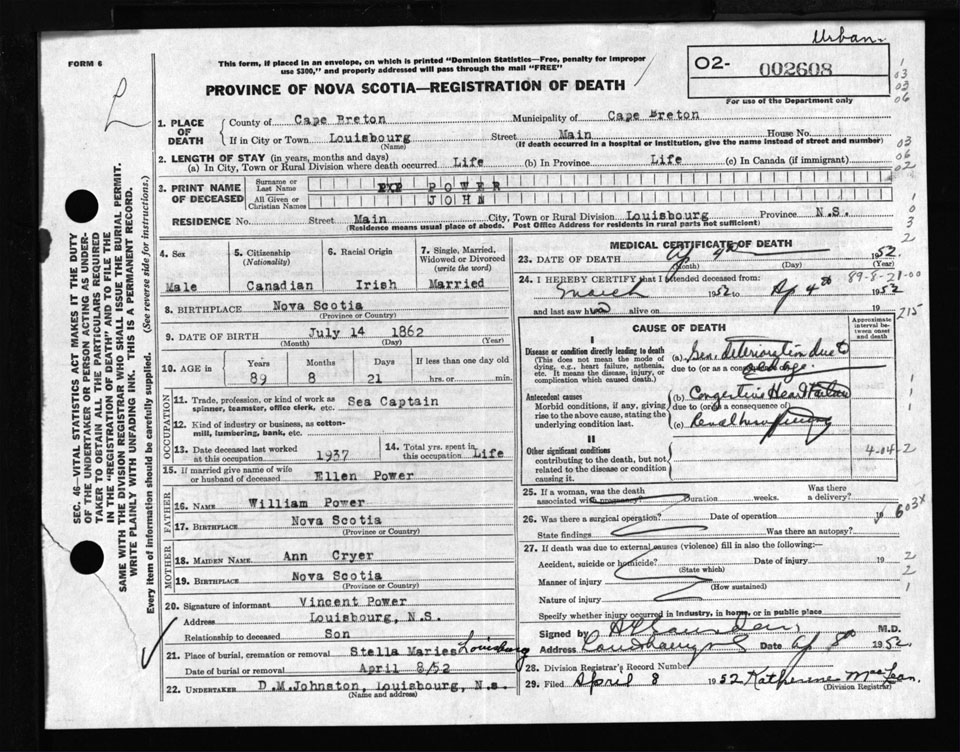 Urban
FORM 6
This form, if placed in an envelope, on which is printed "Dominion Statistics—Free, penalty for improper
use $300," and properly addressed will pass through the mail "FREE"
O2- 002608
For use of the Department only
PROVINCE OF NOVA SCOTIA—REGISTRATION OF DEATH
1. PLACE OF DEATH County of Cape Breton Municipality of Cape Breton
If in City or Town Louisbourg Street Main House No.
(Name) (If death occurred in a hospital or institution, give the name instead of street and number)
2. LENGTH OF STAY (in years, months and days)
(a) In City, Town or Rural Division where death occurred Life (b) In Province Life (c) In Canada (if immigrant)
3. PRINT NAME OF DECEASED Surname or Last Name POWER
All Given or Christian Names JOHN
RESIDENCE No. Street Main City, Town or Rural Division Louisbourg Province N.S.
(Residence means usual place of abode. Post Office Address for residents in rural parts not sufficient)
4. Sex 5. Citizenship (Nationality) 6. Racial Origin 7. Single, Married, Widowed or Divorced (write the word)
Male Canadian Irish Married
8. BIRTHPLACE Nova Scotia
(Province or Country)
9. DATE OF BIRTH July 14 1862
(Month) (Day) (Year)
10. AGE in Years Months Days If less than one day old
89 8 21 hrs. or min.
OCCUPATION
11. Trade, profession, or kind of work as Sea Captain
spinner, teamster, office clerk, etc.
12. Kind of industry or business, as cotton-
mill, lumbering, bank, etc.
13. Date deceased last worked at this occupation 1937 14. Total yrs. spent in this occupation Life
15. If married give name of wife or husband of deceased Ellen Power
FATHER
16. NAME William Power
17. BIRTHPLACE Nova Scotia
(Province or Country)
MOTHER
18. MAIDEN NAME Ann Cryer
19. BIRTHPLACE Nova Scotia
(Province or Country)
20. Signature of informant Vincent Power
Address Louisbourg, N.S.
Relationship to deceased Son
21. Place of burial, cremation or removal Stella Maries Louisburg
Date of burial or removal April 8/52
22. UNDERTAKER D.M.Johnston, Louisbourg, N.s.
(Name and address)
MEDICAL CERTIFICATE OF DEATH
23. DATE OF DEATH Ap 4th 1952
(Month) (Day) (Year)
24. I HEREBY CERTIFY that I attended deceased from: 89-8-21-00
March 1952 to Ap 4th 1952
and last saw h alive on 19
215
CAUSE OF DEATH
Approximate interval between onset and death
I
Disease or condition directly leading to death (a) Gen. deterioration due to
(This does not mean the mode of dying, e.g., heart failure, asthenia, etc. It means the disease, injury, or complication which caused death.) due to (or as a consequence of) old age
Antecedent causes (b) Congestive Heart Failure
Morbid conditions, if any, giving rise to the above cause, stating the underlying condition last. due to (or as a consequence of)
(c) Renal
II
Other significant conditions
contributing to the death, but not related to the disease or condition causing it.
4-04-2
25. If a woman, was the death associated with pregnancy? Duration weeks. Was there a delivery?
26. Was there a surgical operation? Date of operation 19
603X
State findings Was there an autopsy?
27. If death was due to external causes (violence) fill in also the following:—
Accident, suicide or homicide? Date of injury 19
(State which)
Manner of injury
(How sustained)
Nature of injury
Specify whether injury occurred in industry, in home, or in public place
Signed by M.D.
Address Louisbourg NS Date Ap 8th 1952
28. Division Registrar's Record Number
29. Filed April 8 1952 Katherine MacLean.
(Division Registrar)
SEC. 46—VITAL STATISTICS ACT MAKES IT THE DUTY
OF THE UNDERTAKER OR PERSON ACTING AS UNDER-
TAKER TO OBTAIN ALL THE PARTICULARS REQUIRED
IN THE "REGISTRATION OF DEATH" AND TO FILE THE
SAME WITH THE DIVISION REGISTRAR WHO SHALL ISSUE THE BURIAL PERMIT.
WRITE PLAINLY WITH UNFADING INK. THIS IS A PERMANENT RECORD.
Every item of information should be carefully supplied. (See reverse side for instructions.)
1
03
03
06
03
06
02
1
0
3
2